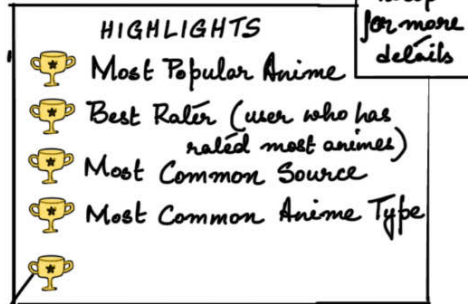 HIGHLIGHTS
for more
details
Most Popular Anime
Best Rater (user who has
rated most animes)
Most Common Source
Most Common Anime Type